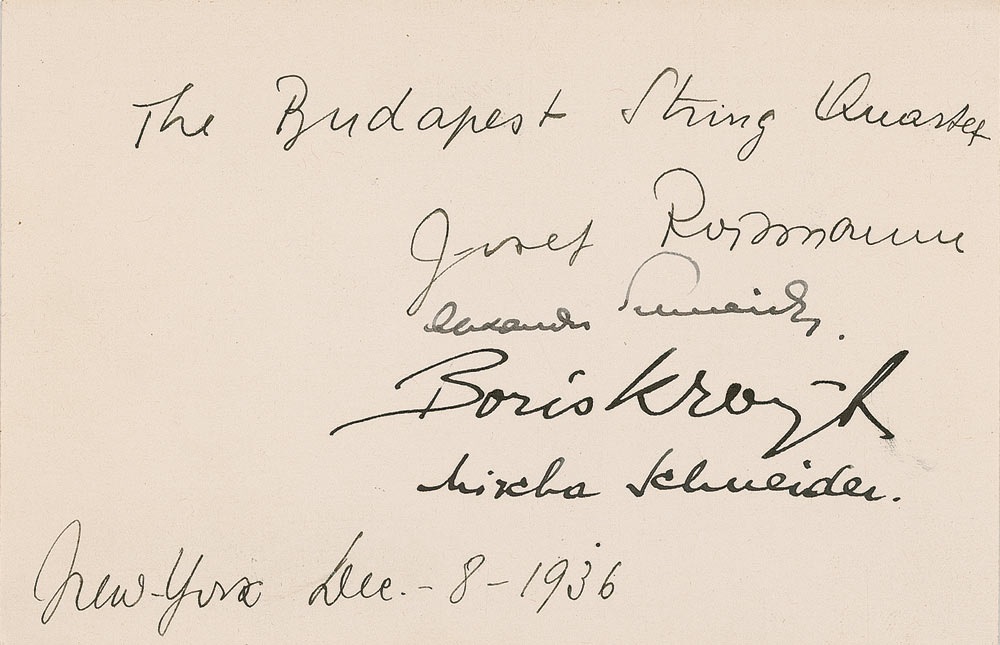 The Budapest String Quartet
Josef Roismann
Alexander Schneider.
Boris Kroyt
Mischa Schneider.
New-York Dec.-8-1936